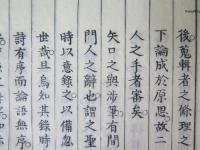 後蒐輯者之條理之
下論成於原思故二
人之手者審矣
矢口之與涉筆有間
門人之辭也謂之聖
時以意錄之以備忘
世哉且烏知其錄時
詩有序而論語無序